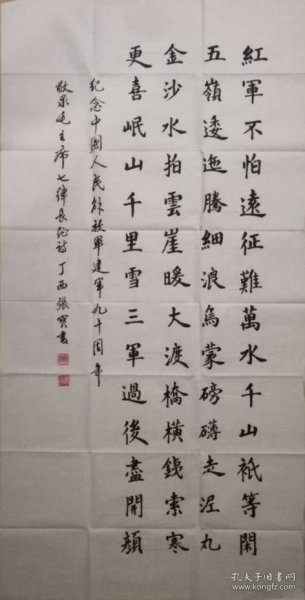 紅軍不怕遠征難萬水千山祇等閑
五嶺逶迤騰細浪烏蒙磅礴走泥丸
金沙水拍雲崖暖大渡橋橫鐵索寒
更喜岷山千里雪三軍過後盡開顏
纪念中國人民解放軍建軍九十周年
敬录毛主席七律長征詩丁酉張寶書
孔夫子旧书网